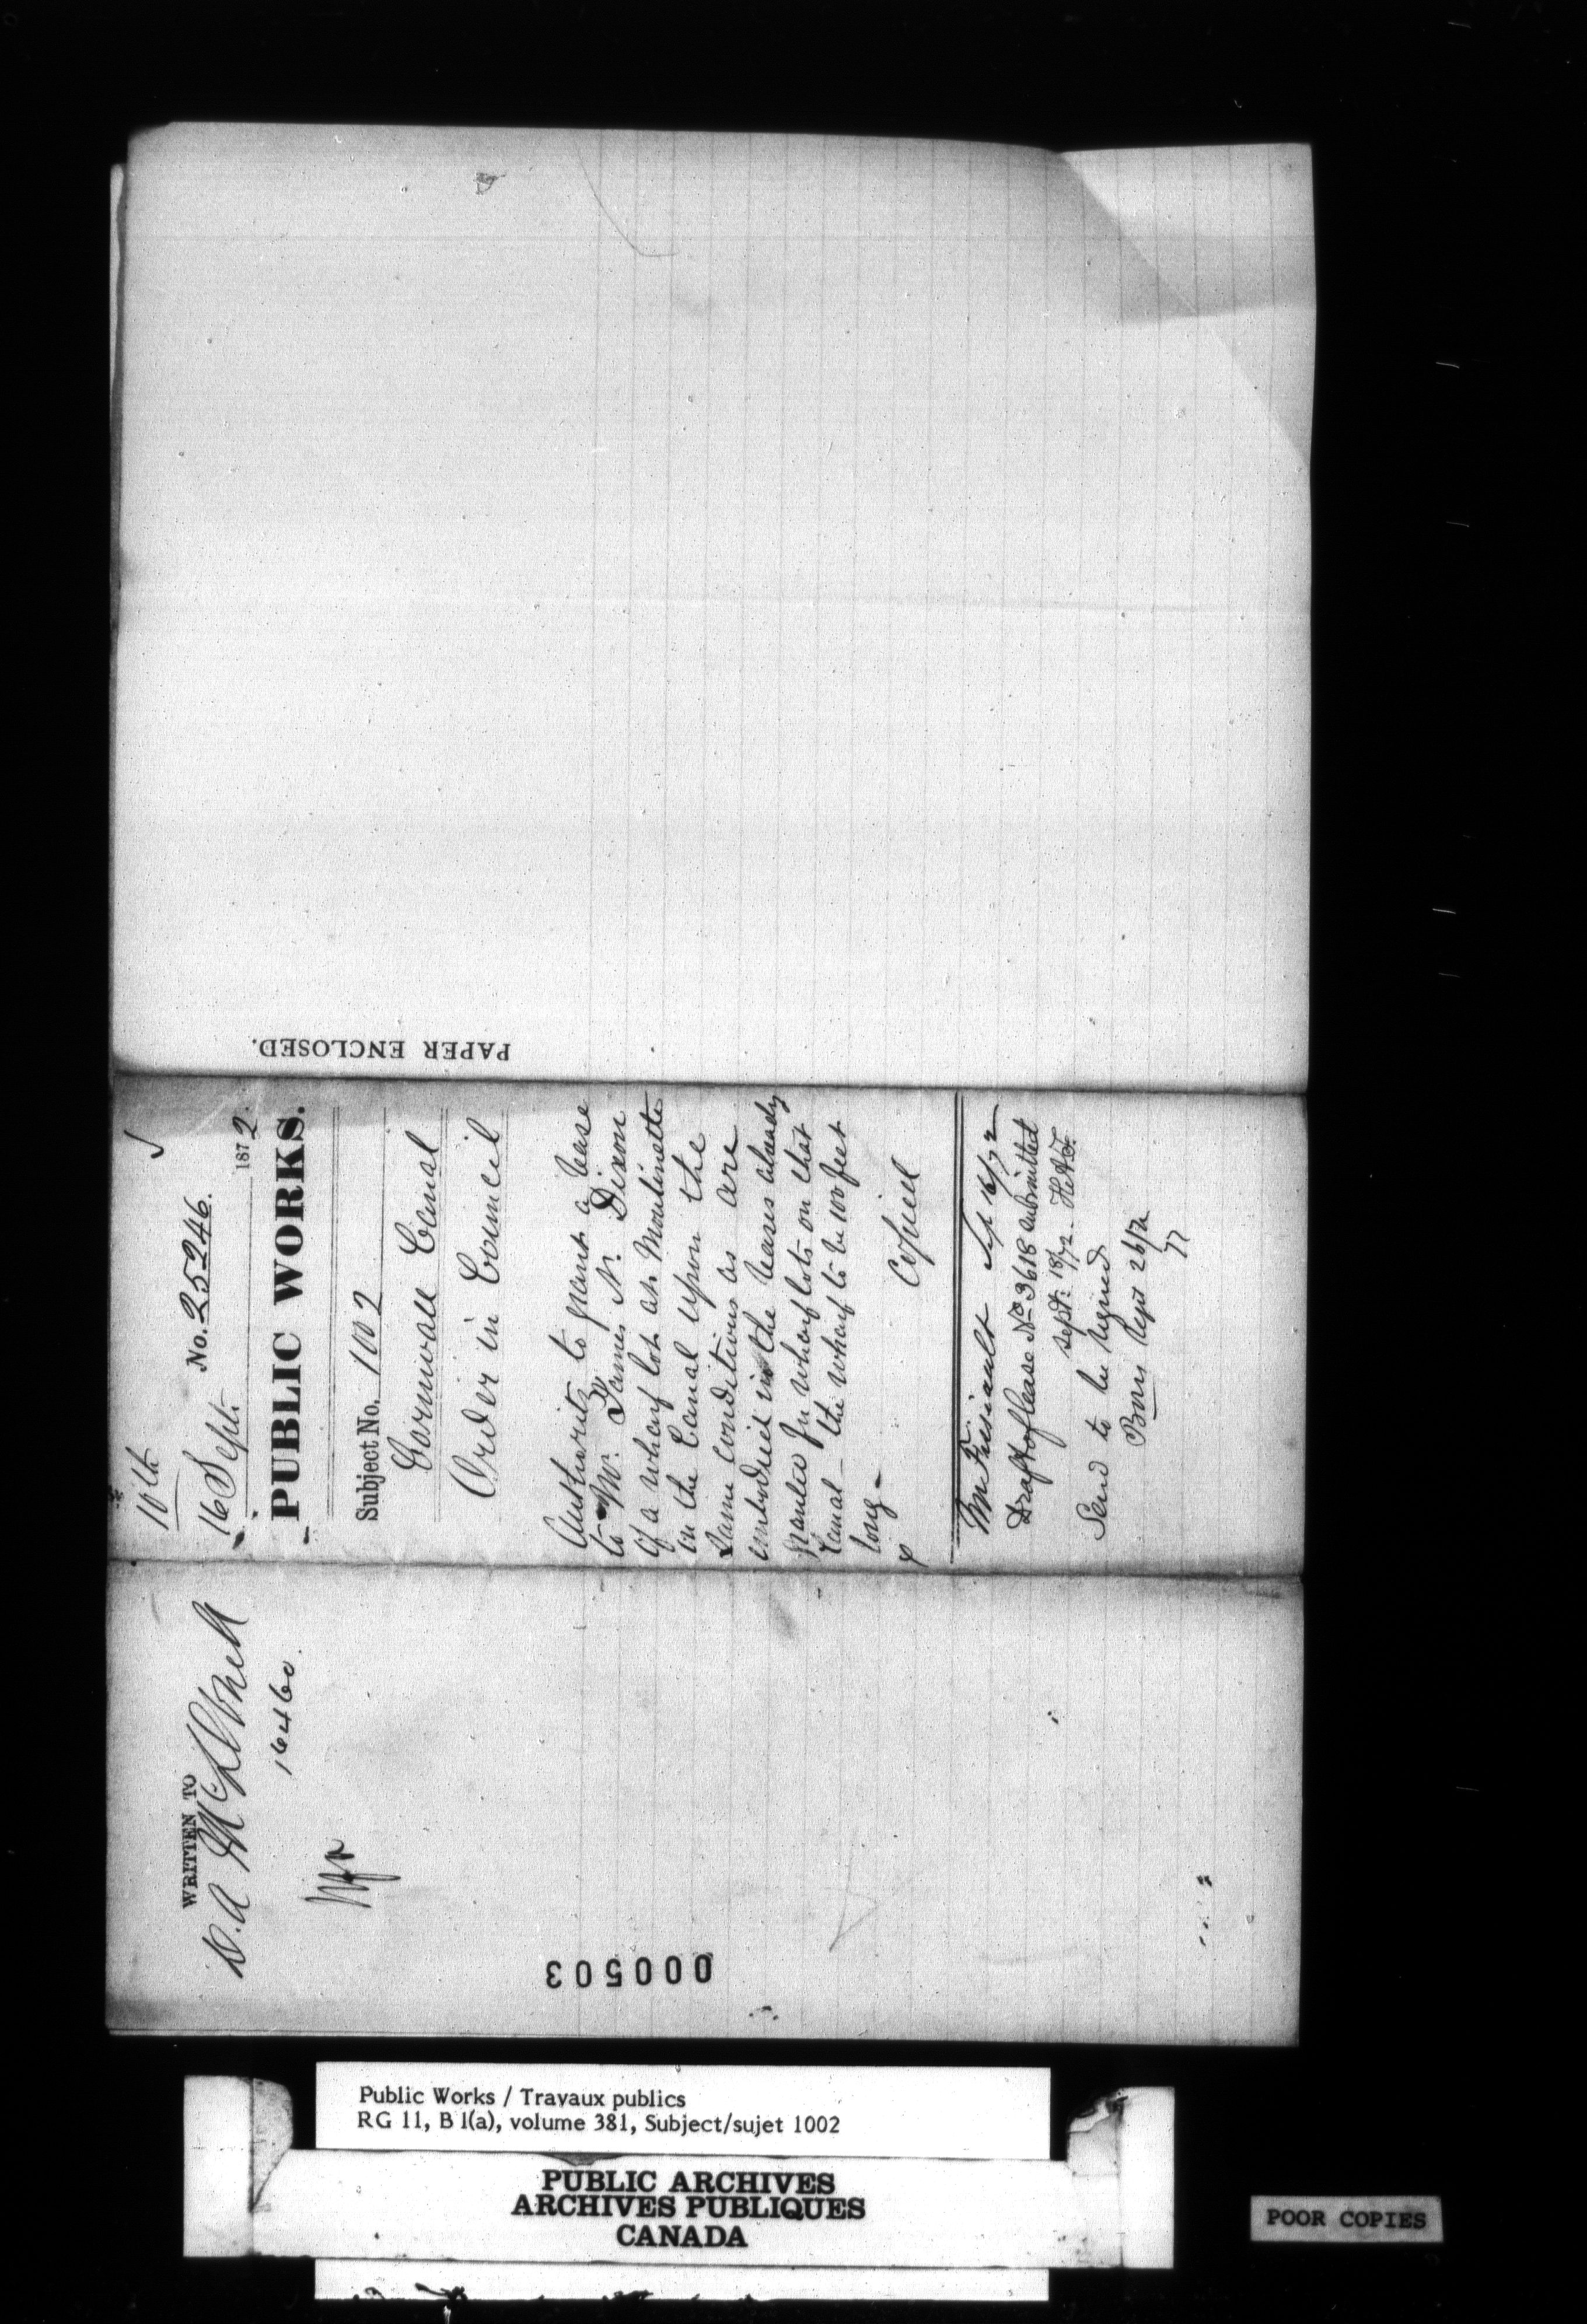 10th
16 Sept. No. 25246. 1872.
PUBLIC WORKS.
Subject No. 1002
Cornwall Canal
Order in Council
Authority to grant a lease
to Mr. James N. Dixon
of a wharf lot at Moulinette
on the Canal upon the
same conditions as are
embodied in the leases already
granted for wharf lots on that
Canal – the wharf to be 100 feet
long –
Copied
Sept 16/72
Draft of lease No 3618 submitted
Sept: 18/72.
Send to be signed
Sept 26/72
PAPER ENCLOSED.
WRITTEN TO
D. A. McDonell
16460.
000503
Public Works / Travaux publics
RG 11, B 1(a), volume 381, Subject/sujet 1002
PUBLIC ARCHIVES
ARCHIVES PUBLIQUES
CANADA
POOR COPIES